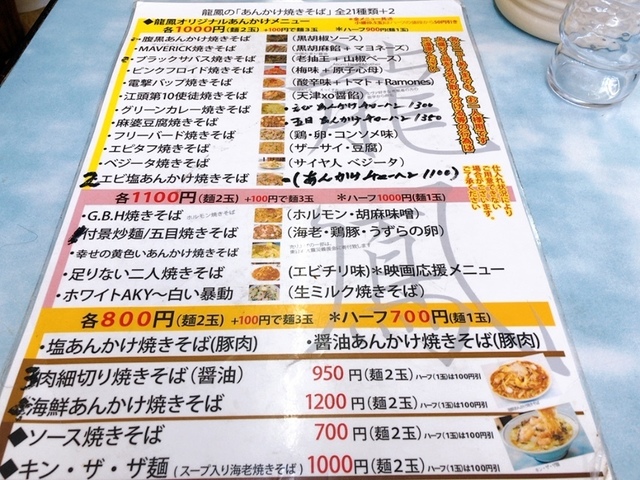 龍鳳の「あんかけ焼きそば」全21種類+2
◆龍鳳オリジナルあんかけメニュー
各1000円(麺2玉) +100円で麺3玉 *ハーフ900円(麺1玉)
・腹黒あんかけ焼きそば (黒胡椒ソース)
・MAVERICK焼きそば (黒胡麻餡+マヨネーズ)
・ブラックサバス焼きそば (老抽王+山椒ベース)
・ピンクフロイド焼きそば (梅味+原子心母)
・電撃バップ焼きそば (酸辛味+トマト+Ramones)
・江頭第10使徒焼きそば (天津xo醤餡)
・グリーンカレー焼きそば えびあんかけチャーハン 1300
・麻婆豆腐焼きそば 五目あんかけチャーハン 1350
・フリーバード焼きそば (鶏・卵・コンソメ味)
・エピタフ焼きそば (ザーサイ・豆腐)
・ベジータ焼きそば (サイヤ人 ベジータ)
エビ塩あんかけ焼きそば (あんかけチャーハン 1100)
仕入れ状況により
ご了承下さい。
各1100円(麺2玉) +100円で麺3玉 *ハーフ1000円(麺1玉)
・G.B.H焼きそば ホルモン焼きそば (ホルモン・胡麻味噌)
付景炒麺/五目焼きそば (海老・鶏豚・うずらの卵)
・幸せの黄色いあんかけ焼きそば
・足りない二人焼きそば (エビチリ味)*映画応援メニュー
・ホワイトAKY〜白い暴動 (生ミルク焼きそば)
各800円(麺2玉) +100円で麺3玉 *ハーフ700円(麺1玉)
・塩あんかけ焼きそば(豚肉) ・醤油あんかけ焼きそば(豚肉)
肉細切り焼きそば(醤油) 950円(麺2玉) ハーフ(1玉)は100円引
海鮮あんかけ焼きそば 1200円(麺2玉) ハーフ(1玉)は100円引
◆ソース焼きそば 700円(麺2玉) ハーフ(1玉)は100円引
◆キン・ザ・ザ麺(スープ入り海老焼きそば) 1000円(麺2玉) ハーフ(1玉)は100円引
龍鳳